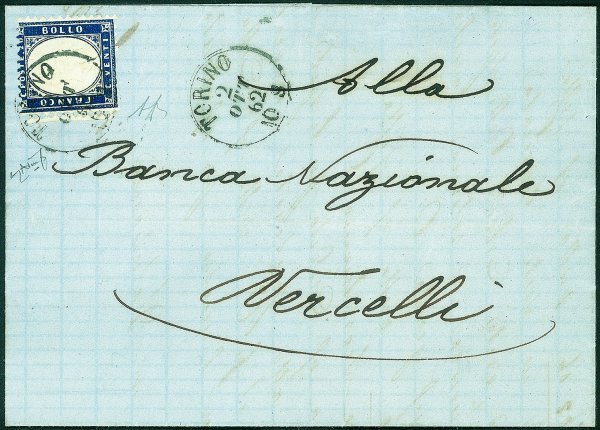 BOLLO
C. VENTI
FRANCO
TORINO
2
OTT
62
10 S
Alla
Banca Nazionale
Vercelli